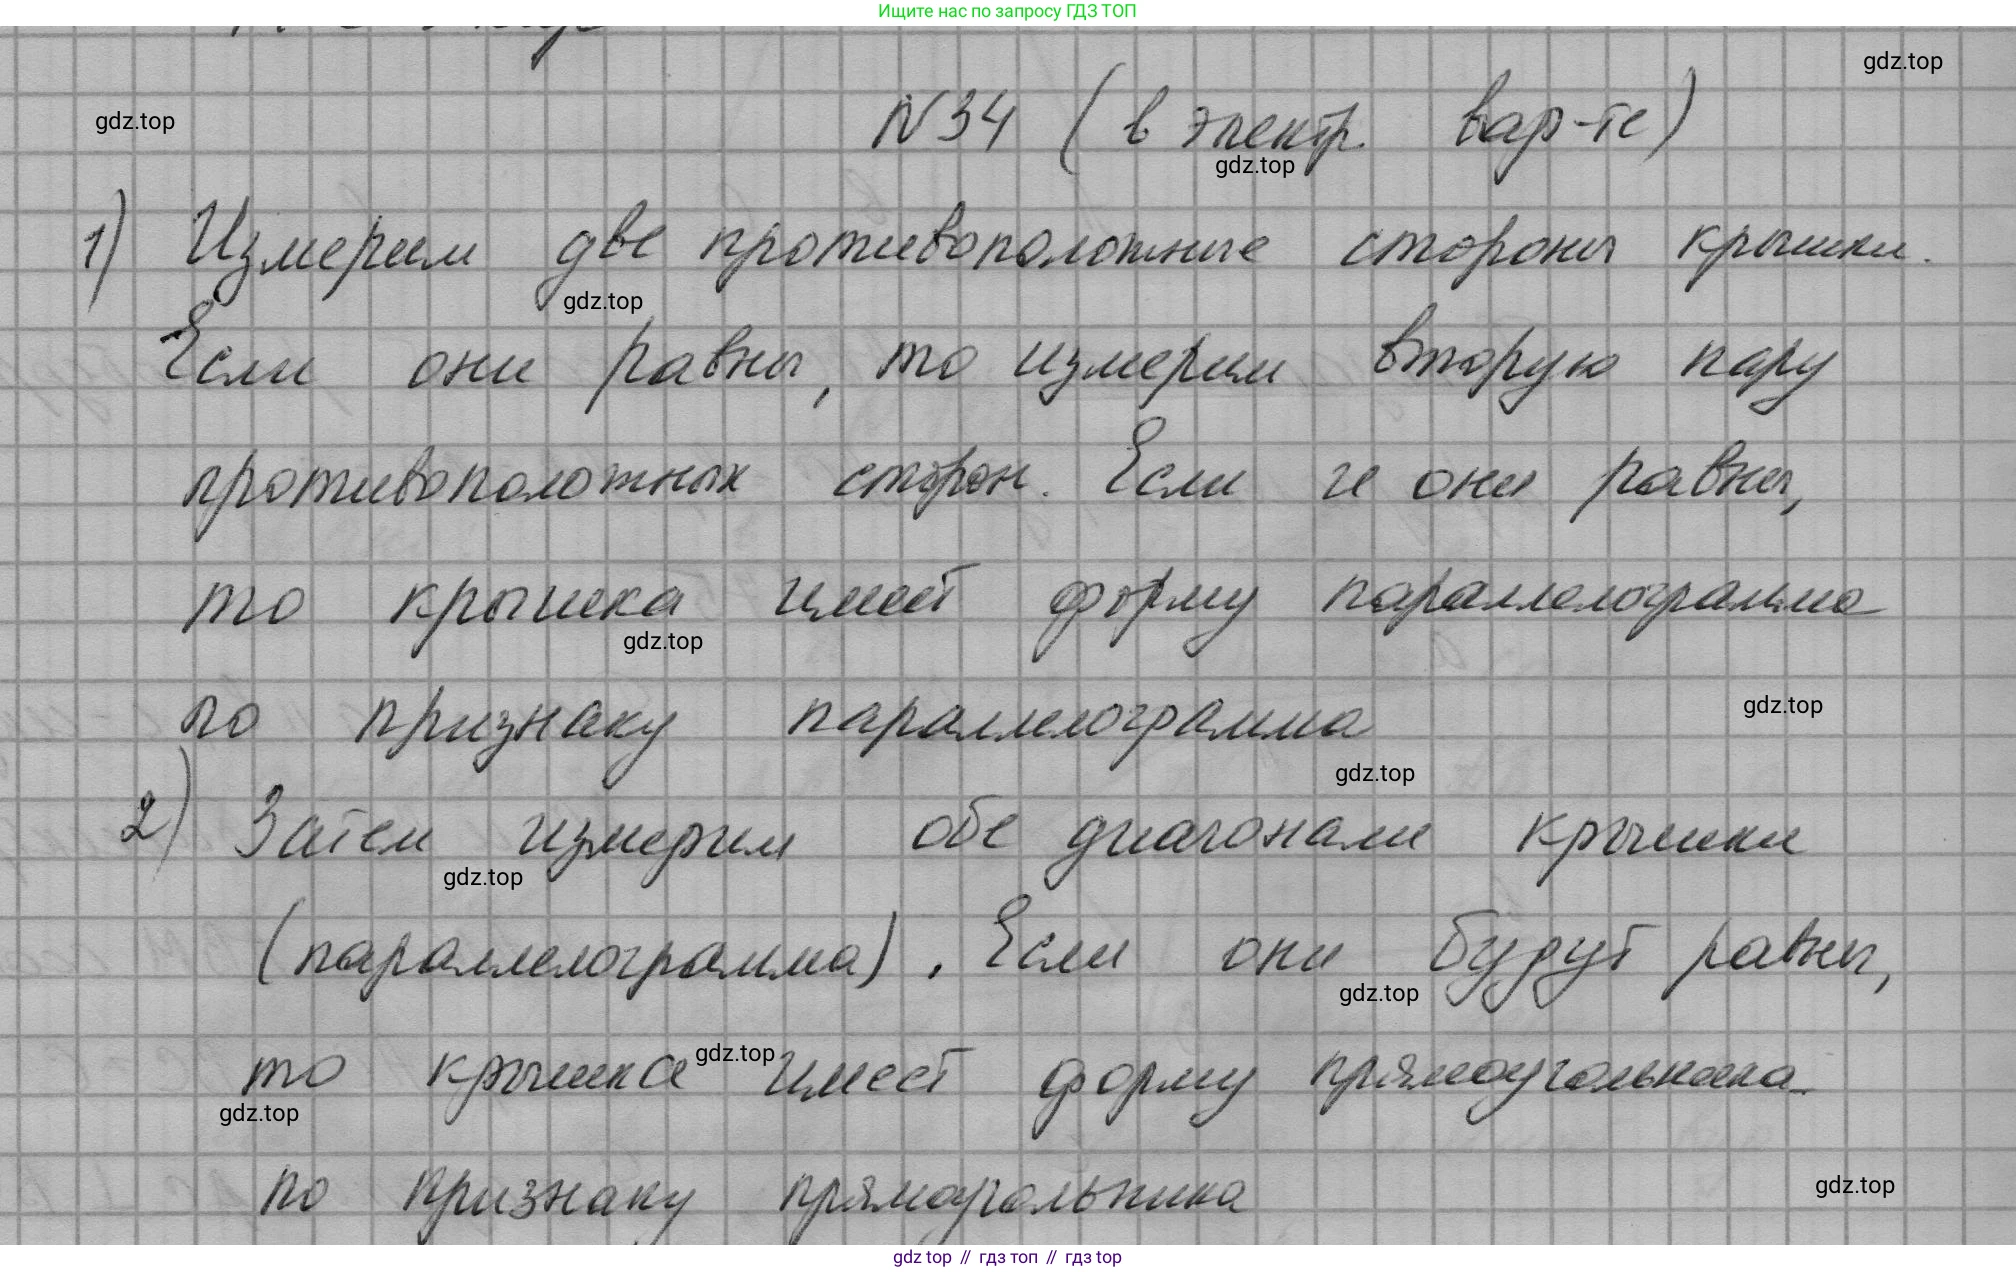 Ищите нас по запросу ГДЗ ТОП
gdz.top
gdz.top
N34 (в электр. вар-те)
gdz.top
1) Измерим две противоположные стороны крышки.
gdz.top
Если они равны, то измерим вторую пару
противоположных сторон. Если и они равны,
то крышка имеет форму параллелограмма
gdz.top
по признаку параллелограмма
gdz.top
gdz.top
2) Затем измерим обе диагонали крышки
gdz.top
(параллелограмма). Если они будут равны,
gdz.top
то крышка имеет форму прямоугольника
gdz.top
gdz.top
по признаку прямоугольника
gdz.top
gdz top // гдз топ // гдз top